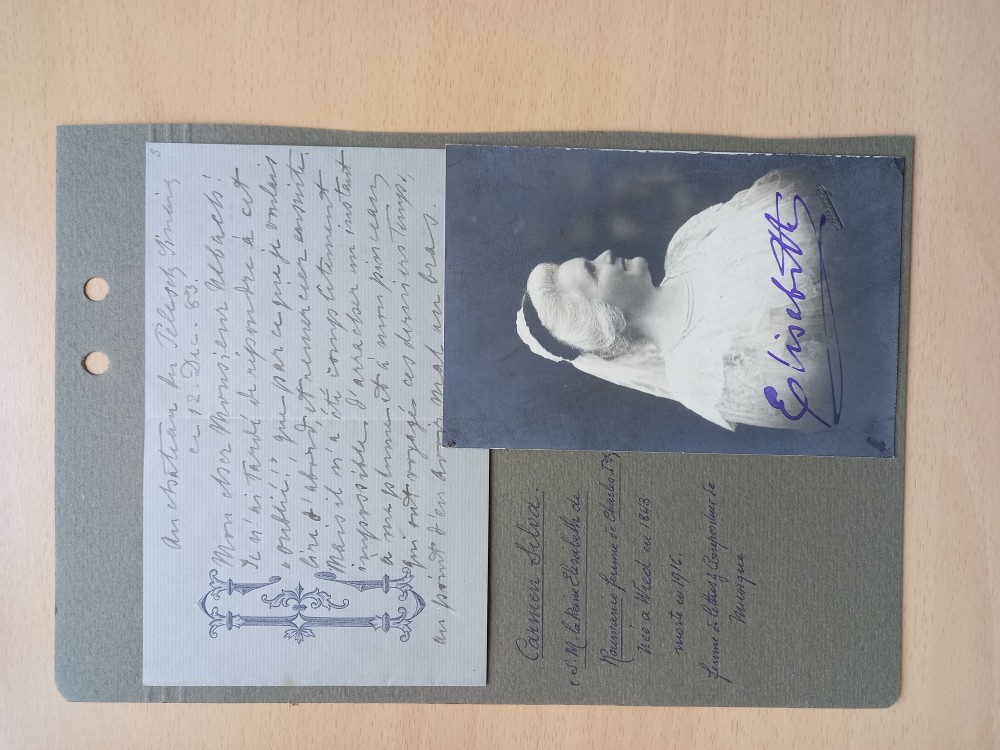 au château du Pelesch, Sinaia
ce 12. Dec. 83.
Mon cher Monsieur Ulbach!
Je n'ai tardé de répondre à cet
„oublié" que parce que je voulais
lire d'abord, & remercier ensuite.
Mais il m'a été complètement
impossible d'arracher un instant
à ma plume & à mon pinceau,
qui ont voyagé ces derniers temps,
au point d'en avoir mal au bras.
Carmen Silva.
(S. M. la Reine Elisabeth de
Roumanie femme de Charles I)
née à Wied en 1843
morte en 1916.
femme de lettres & compositeur de
Musique
Elisabeth